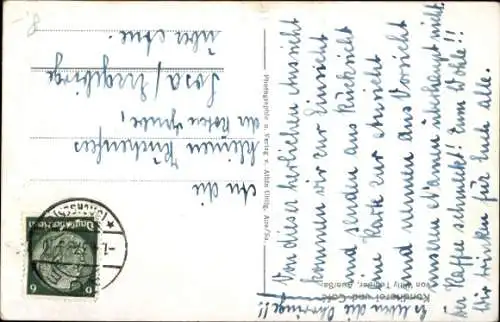 An die
kleinen Küchenfeen
der Roten Grube,
Sosa / Erzgebirge
über Aue.
Deutsches Reich
6
Photographie u. Verlag v. Albin Uhlig, Aue/Sa.
Konditorei und Café
von Willy Aue/Sa.
Von dieser herrlichen Aussicht
kommen wir zur Einsicht
und senden aus Rücksicht
eine Karte zur Ansicht
und nennen aus Vorsicht
unseren Namen überhaupt nicht.
Der Kaffee schmeckt! Zum Wohle!!
Wir trinken für Euch alle.
Es leben die Ohrringe!!